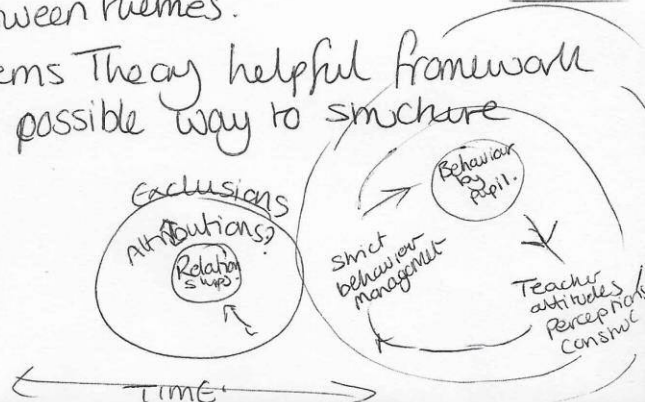 ween themes.
ems Theory helpful framework
possible way to structure
Exclusions
Attributions?
Relation
ships
Behaviour
by
pupil.
Strict
behaviour
management
Teacher
attitudes /
perceptions
construc
TIME